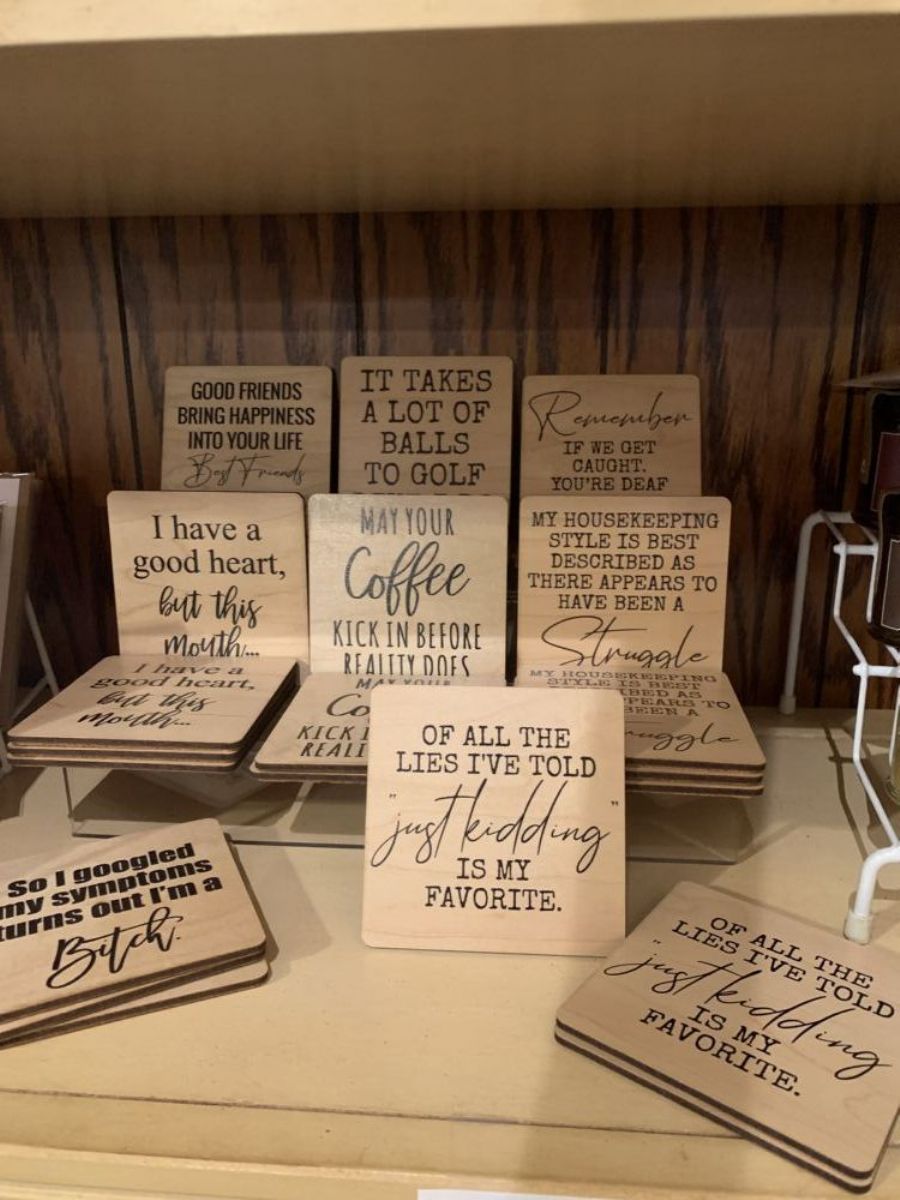 GOOD FRIENDS
BRING HAPPINESS
INTO YOUR LIFE
Best Friends
IT TAKES
A LOT OF
BALLS
TO GOLF
Remember
IF WE GET
CAUGHT.
YOU'RE DEAF
I have a
good heart,
but this
mouth...
MAY YOUR
Coffee
KICK IN BEFORE
REALITY DOES
MY HOUSEKEEPING
STYLE IS BEST
DESCRIBED AS
THERE APPEARS TO
HAVE BEEN A
Struggle
I have a
good heart,
but this
mouth...
MAY YOUR
Co
KICK I
REALI
MY HOUSEKEEPING
STYLE IS BEST
IBED AS
PEARS TO
BEEN A
ruggle
OF ALL THE
LIES I'VE TOLD
"just kidding"
IS MY
FAVORITE.
So I googled
my symptoms
turns out I'm a
Bitch.
OF ALL THE
LIES I'VE TOLD
"just kidding
IS MY
FAVORITE.